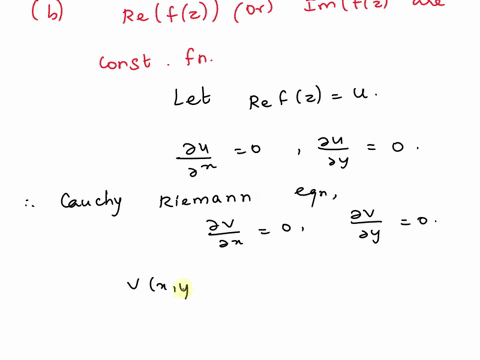 (b) Re(f(z)) (or) Im(f(z) are
const. fn.
Let Re f(z) = u.
∂u/∂x = 0 , ∂u/∂y = 0.
∴ Cauchy Riemann eqn,
∂v/∂x = 0, ∂v/∂y = 0.
v(x,y